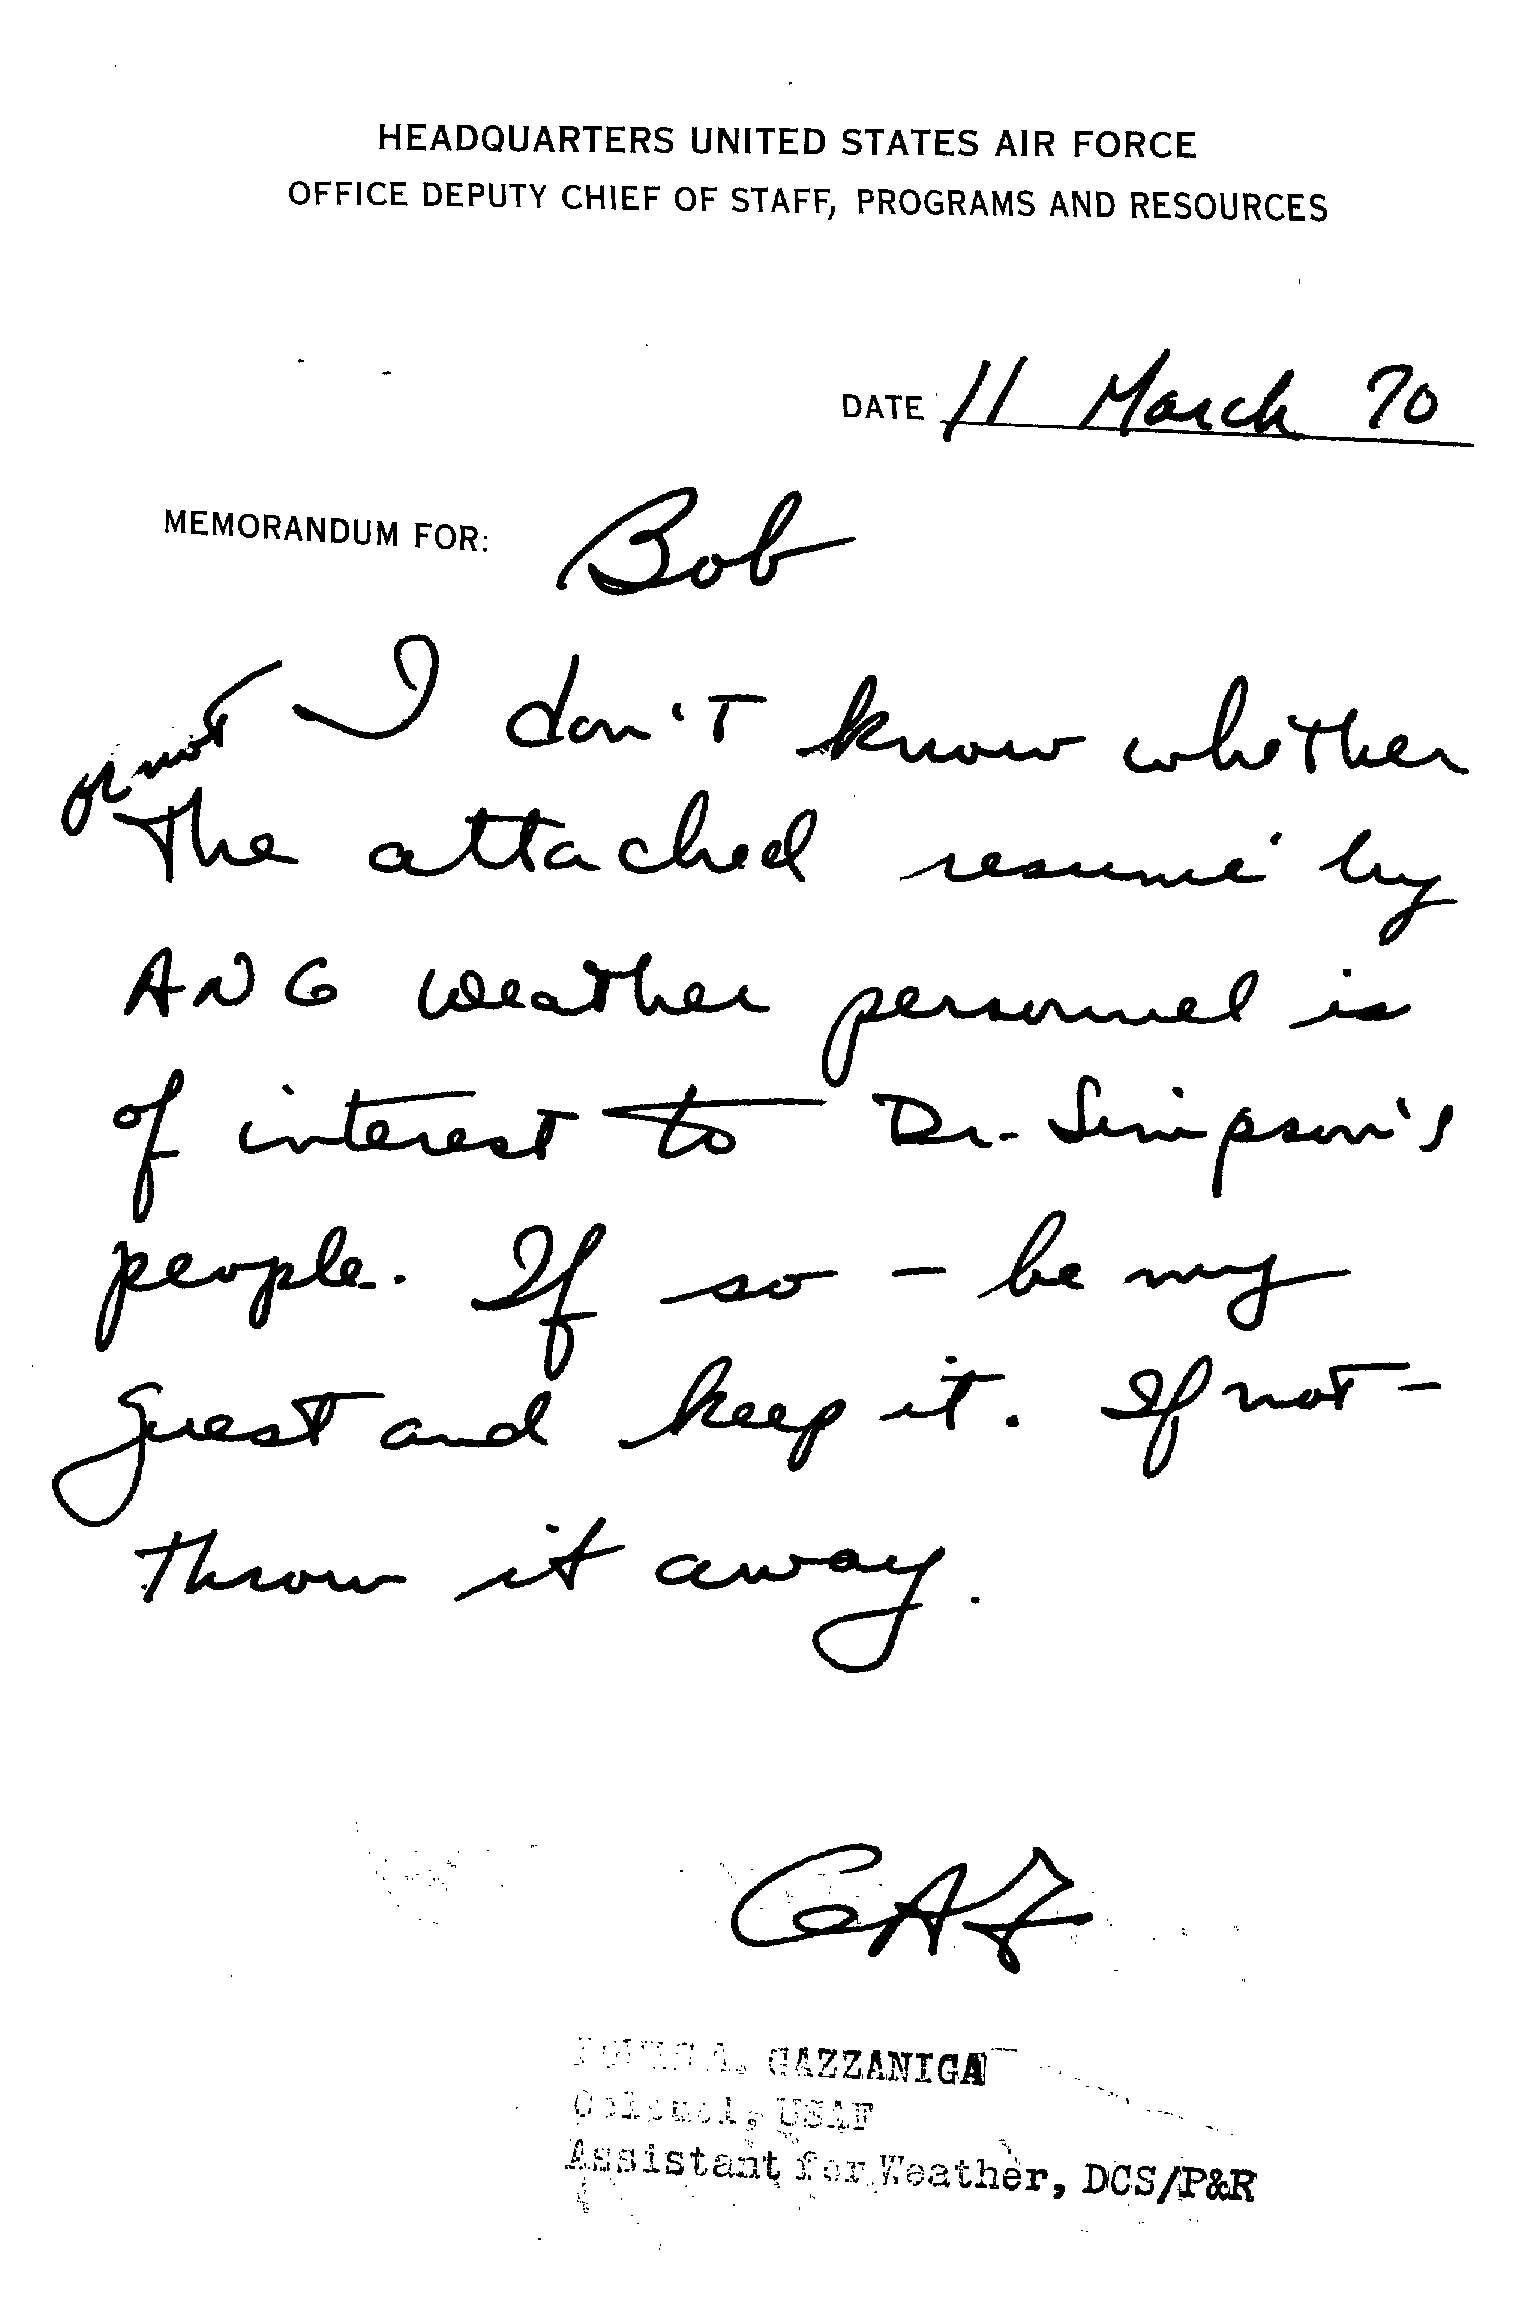 HEADQUARTERS UNITED STATES AIR FORCE
OFFICE DEPUTY CHIEF OF STAFF, PROGRAMS AND RESOURCES
DATE 11 March 70
MEMORANDUM FOR: Bob
or not I don't know whether
the attached resumé by
ANG weather personnel is
of interest to Dr. Simpson's
people. If so - be my
guest and keep it. If not -
throw it away.
GAZZANIGA
Colonel, USAF
Assistant for Weather, DCS/P&R